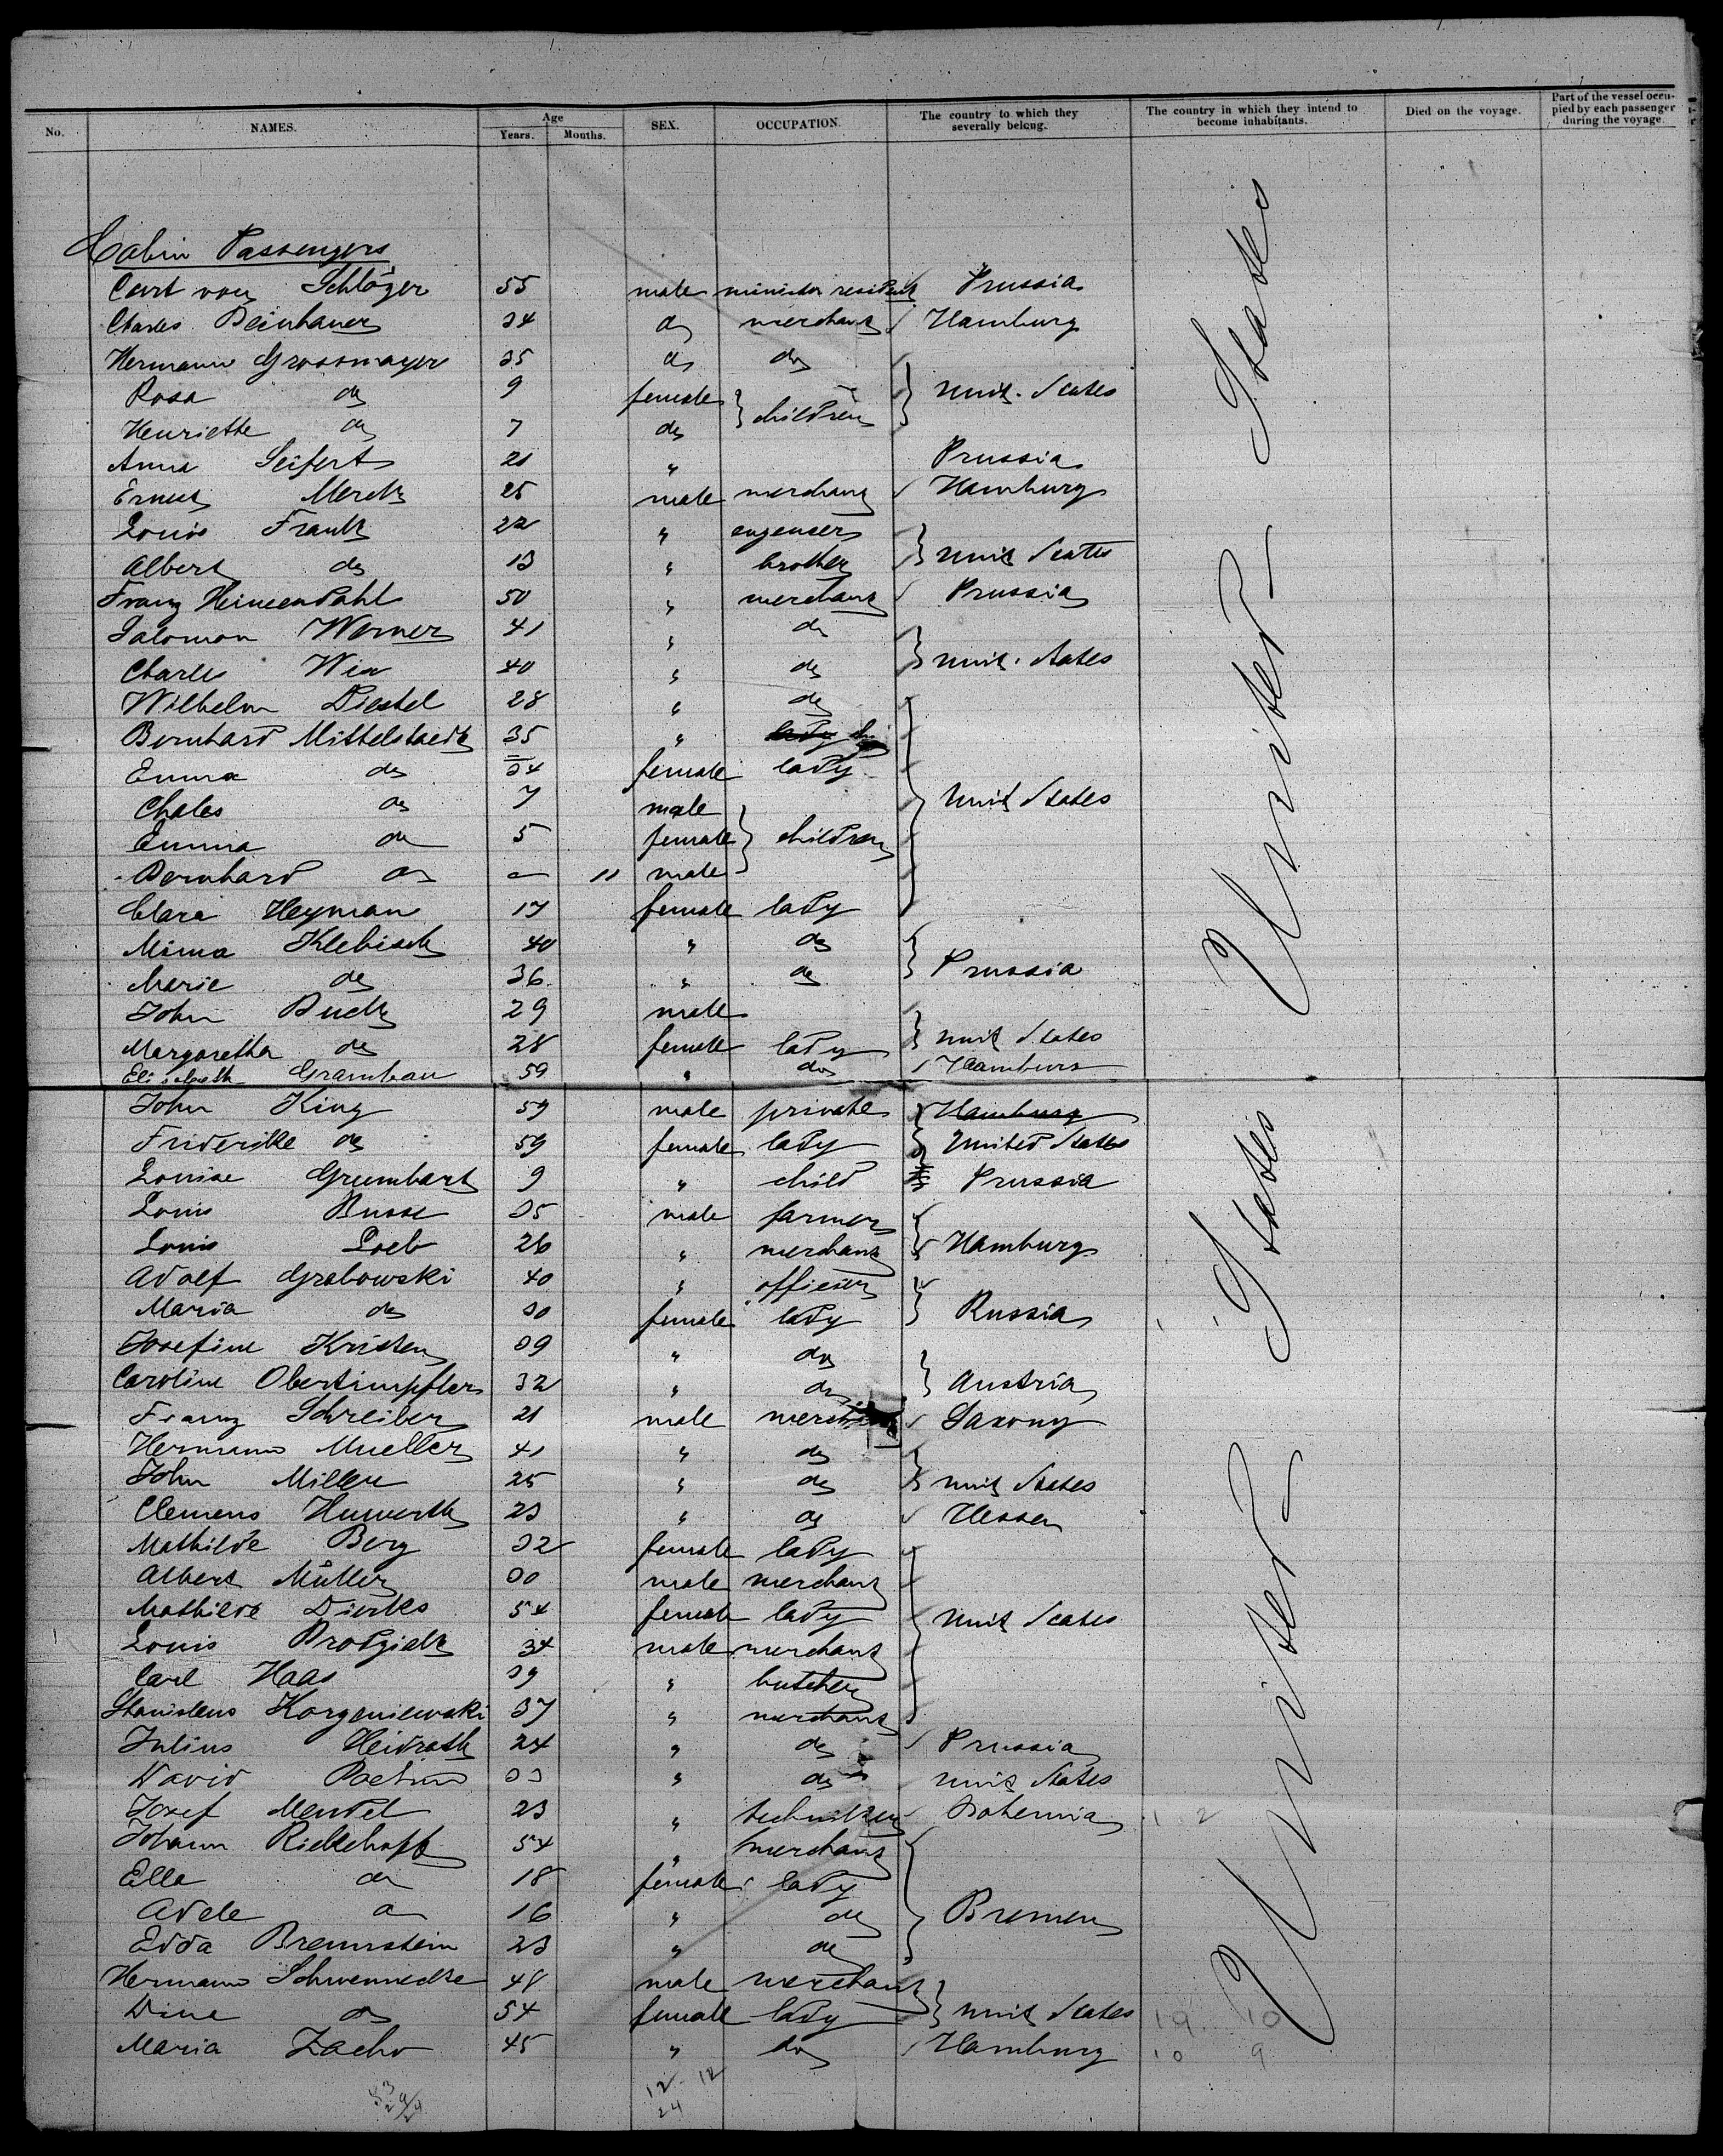 No. NAMES. Age Years. Months. SEX. OCCUPATION. The country to which they severally belong. The country in which they intend to become inhabitants. Died on the voyage. Part of the vessel occupied by each passenger during the voyage.
Cabin Passengers
Curt von Schlözer 55 male minister resident Prussia
Charles Beinhauer 34 do merchant Hamburg
Hermann Grossmayer 35 do do
Rosa do 9 female children Unit. States
Henriette do 7 do
Anna Seifert 21 " Prussia
Ernest Merck 25 male merchant Hamburg
Louis Frank 22 " engeneer
Albert do 13 " brother Unit States
Franz Heimendahl 50 " merchant Prussia
Salomon Werner 41 " do
Charles Wix 40 " do Unit. States
Wilhelm Diestel 28 " do
Bernhard Mittelstaedt 35 " lady do
Emma do 34 female lady
Chales do 7 male Unit States
Emma do 5 female children
Bernhard do - 11 male
Clara Heyman 17 female lady
Minna Klebisch 40 " do
Marie do 36 " do Prussia
John Buck 29 male
Margaretha do 28 female lady Unit States
Elisabeth Grambau 59 " do Hamburg
John King 59 male private Hamburg
Friderike do 59 female lady United States
Louise Grumbart 9 " child Prussia
Louis Busse 35 male farmer
Louis Loeb 26 " merchant Hamburg
Adolf Grabowski 40 " officier
Maria do 30 female lady Russia
Josefine Kristen 39 " do
Caroline Obertimpfler 32 " do Austria
Franz Schreiber 21 male merchant Saxony
Hermann Mueller 41 " do
John Miller 25 " do Unit States
Clemens Huwerth 23 " do Hessen
Mathilde Berg 32 female lady
Albert Müller 30 male merchant
Mathilde Dierks 54 female lady Unit States
Louis Brodzick 34 male merchant
Carl Haas 39 " butcher
Stanislaus Korzeniewski 37 " merchant
Julius Heidrath 24 " do Prussia
David 33 " do Unit States
Josef Mendel 23 " techniker Bohemia 1 2
Johann Rickehoff 54 " merchant
Ella do 18 female lady
Adele do 16 " do Bremen
Edda Brennstein 23 " do
Hermann Schwennecke 48 male merchant
Dine do 54 female lady Unit States 19 10
Maria Zacho 45 " do Hamburg 10 9
12 12
24
United States
United States